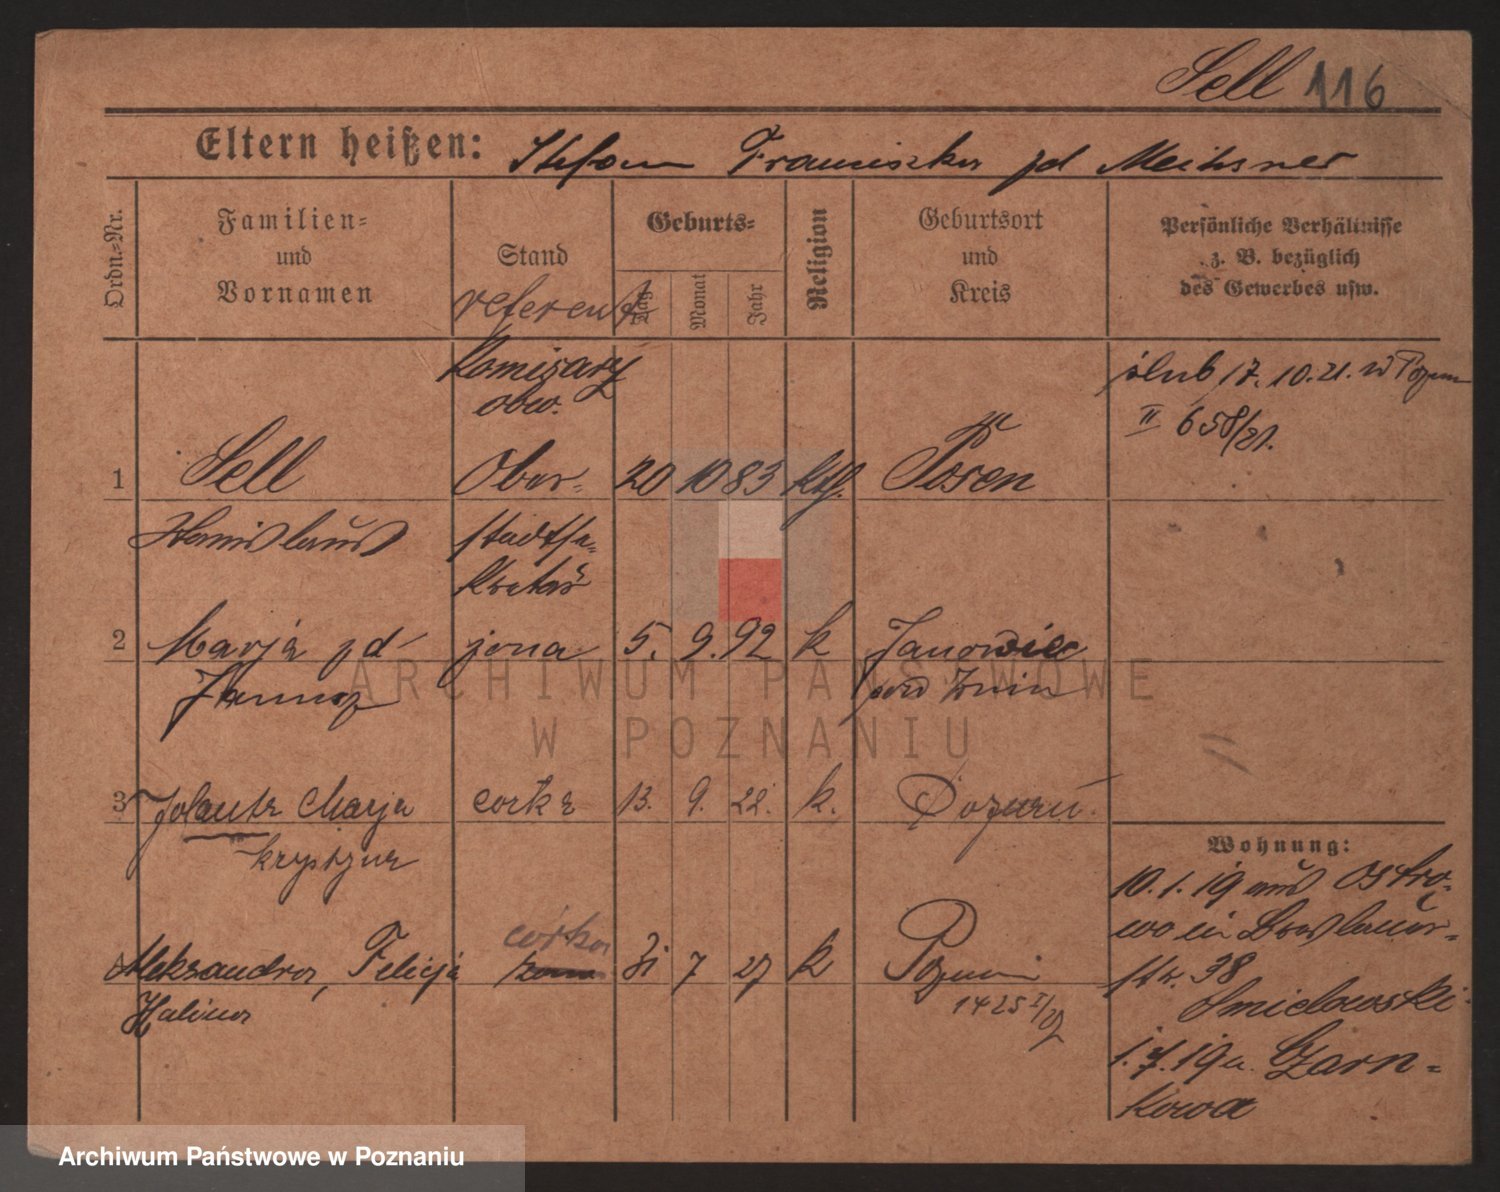 Sell 116
Eltern heißen: Stefan Franciszka zd Meissner
Ordn.-Nr.
Familien-
und
Vornamen
Stand
referent
Geburts-
Tag
Monat
Jahr
Religion
Geburtsort
und
Kreis
Persönliche Verhältnisse
z. B. bezüglich
des Gewerbes usw.
Komisarz
obw.
ślub 17.10.21. w Pozn
II 658/21.
1 Sell Ober- 20 10 83 kth. Posen
Stanislaus Stadtse-
kretär
2 Marja zd żona 5. 9. 92 k Janowiec
pod Żnin
3 Jolanta Marja córka 13. 9. 22. k. Poznań
Krystyna
Wohnung:
10.1.19 aus Ostro-
wo in Breslauer-
str. 38
Aleksandra, Felicja córka 31 7 27 k Poznań
Halina 1425 I/27
1.7.19 a. Czarn-
kowa
ARCHIWUM PAŃSTWOWE
W POZNANIU
Archiwum Państwowe w Poznaniu